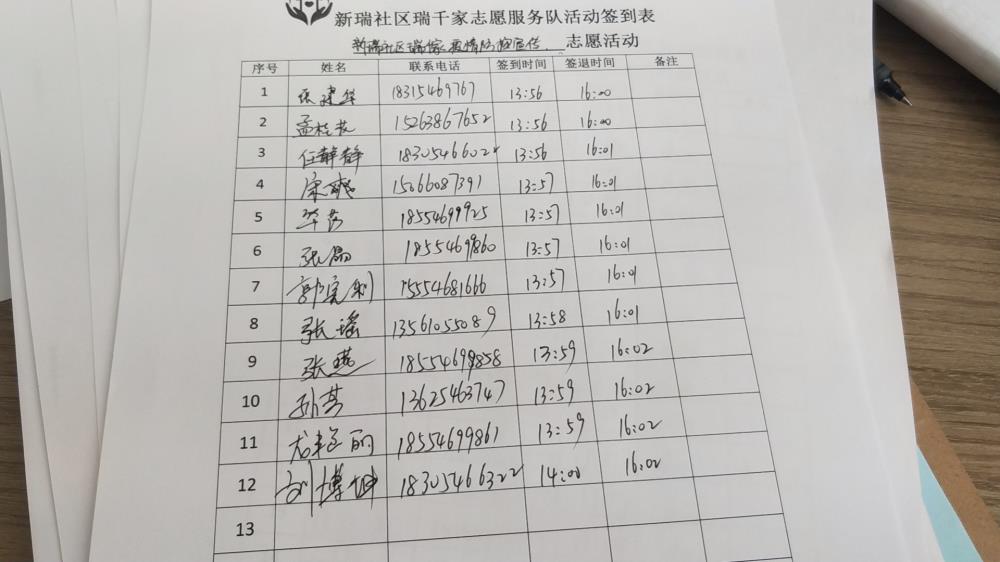 新瑞社区瑞千家志愿服务队活动签到表
新瑞社区瑞千家疫情防控宣传 志愿活动
序号 姓名 联系电话 签到时间 签退时间 备注
1 张建华 18315469767 13:56 16:00
2 孟桂花 15263867652 13:56 16:00
3 任静静 18305466022 13:56 16:01
4 宋爽 15066087391 13:57 16:01
5 华芳 18554699925 13:57 16:01
6 张磊 18554699860 13:57 16:01
7 郭宾利 15554681666 13:57 16:01
8 张瑶 13561055089 13:58 16:01
9 张燕 18554699858 13:59 16:02
10 孙芸 13625463747 13:59 16:02
11 尤丽 18554699861 13:59 16:02
12 刘博坤 18305466322 14:00 16:02
13